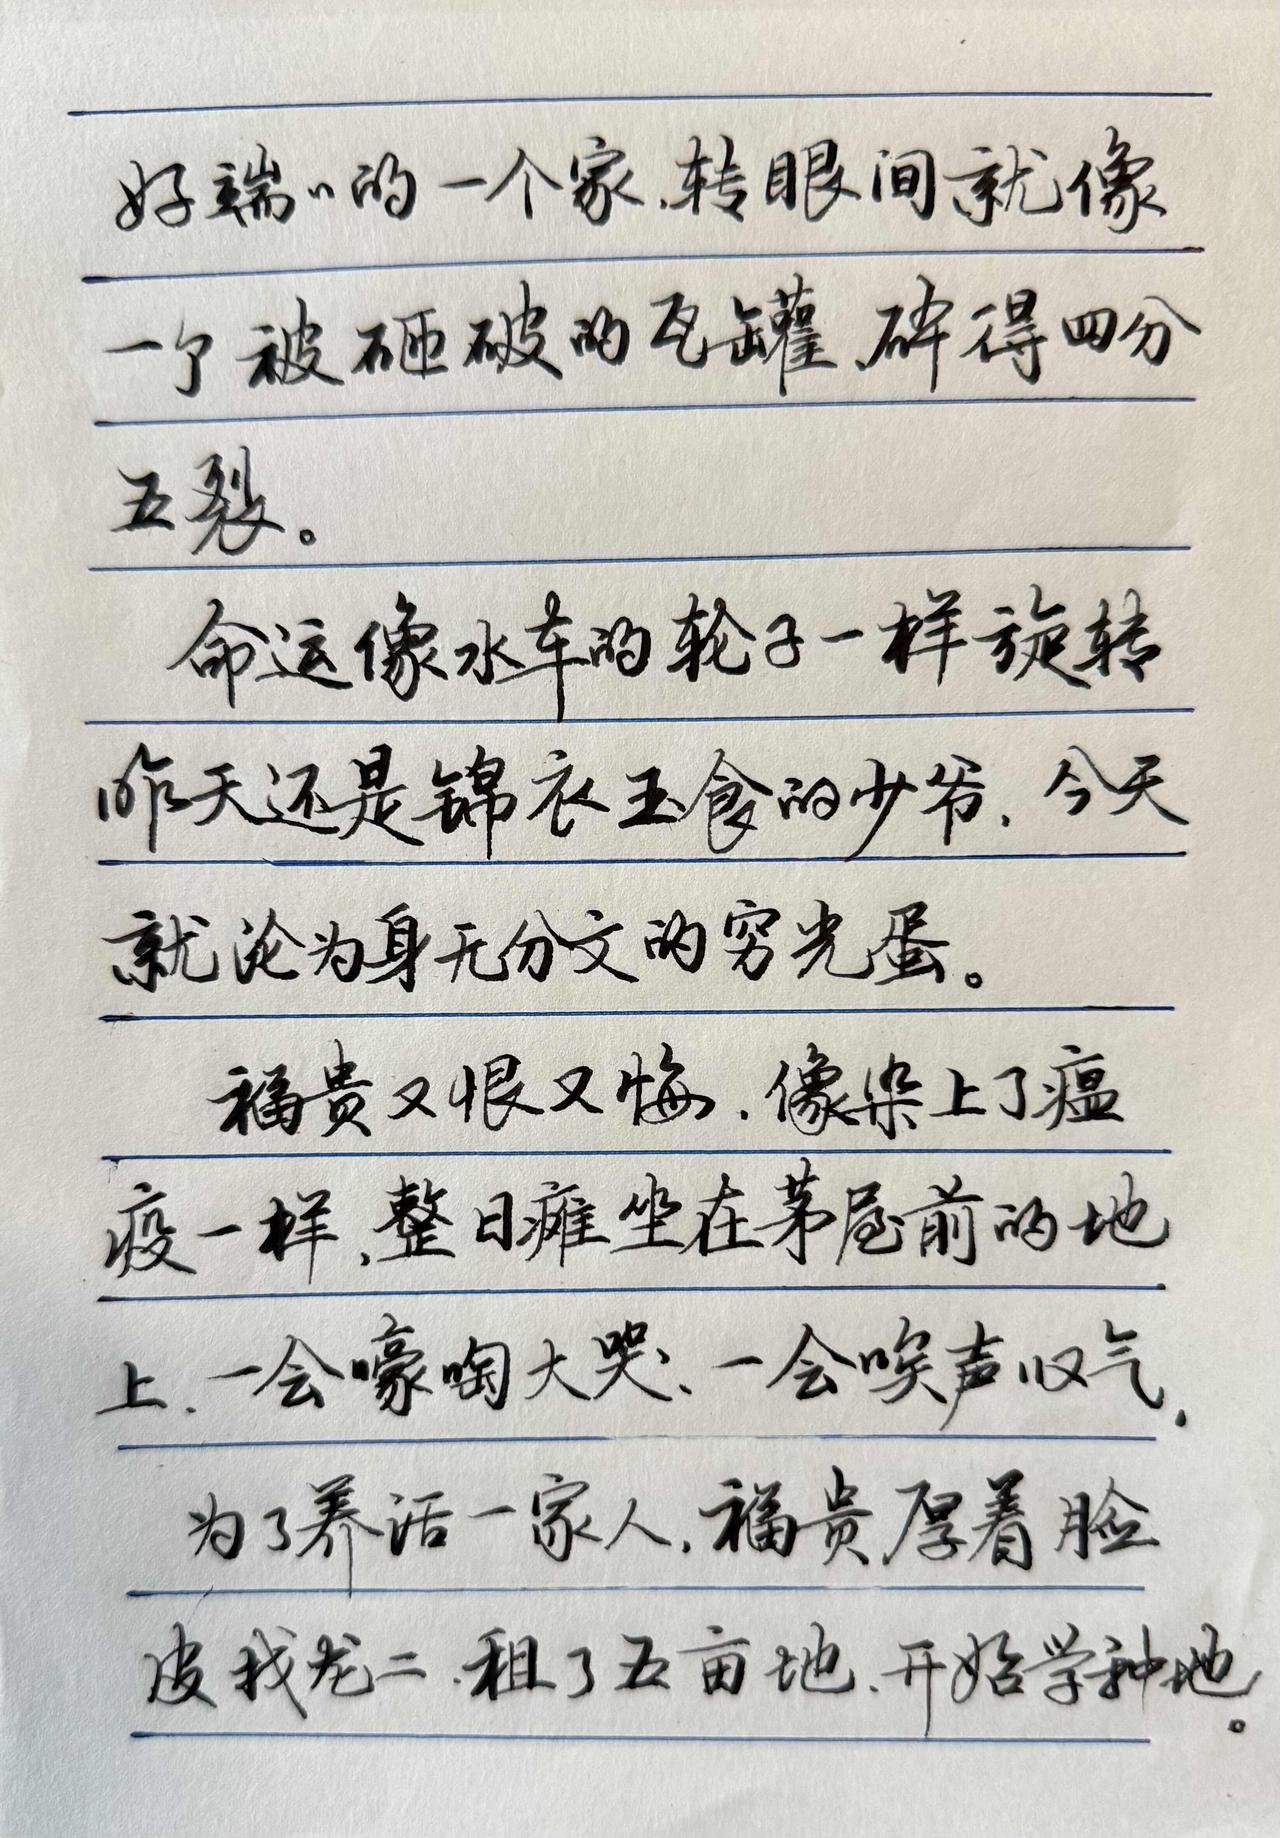 好端〃的一个家,转眼间就像
一个被砸破的瓦罐,碎得四分
五裂。
命运像水车的轮子一样旋转
昨天还是锦衣玉食的少爷,今天
就沦为身无分文的穷光蛋。
福贵又恨又悔,像染上了瘟
疫一样,整日瘫坐在茅屋前的地
上,一会嚎啕大哭,一会唉声叹气,
为了养活一家人,福贵厚着脸
皮找龙二,租了五亩地,开始学种地。